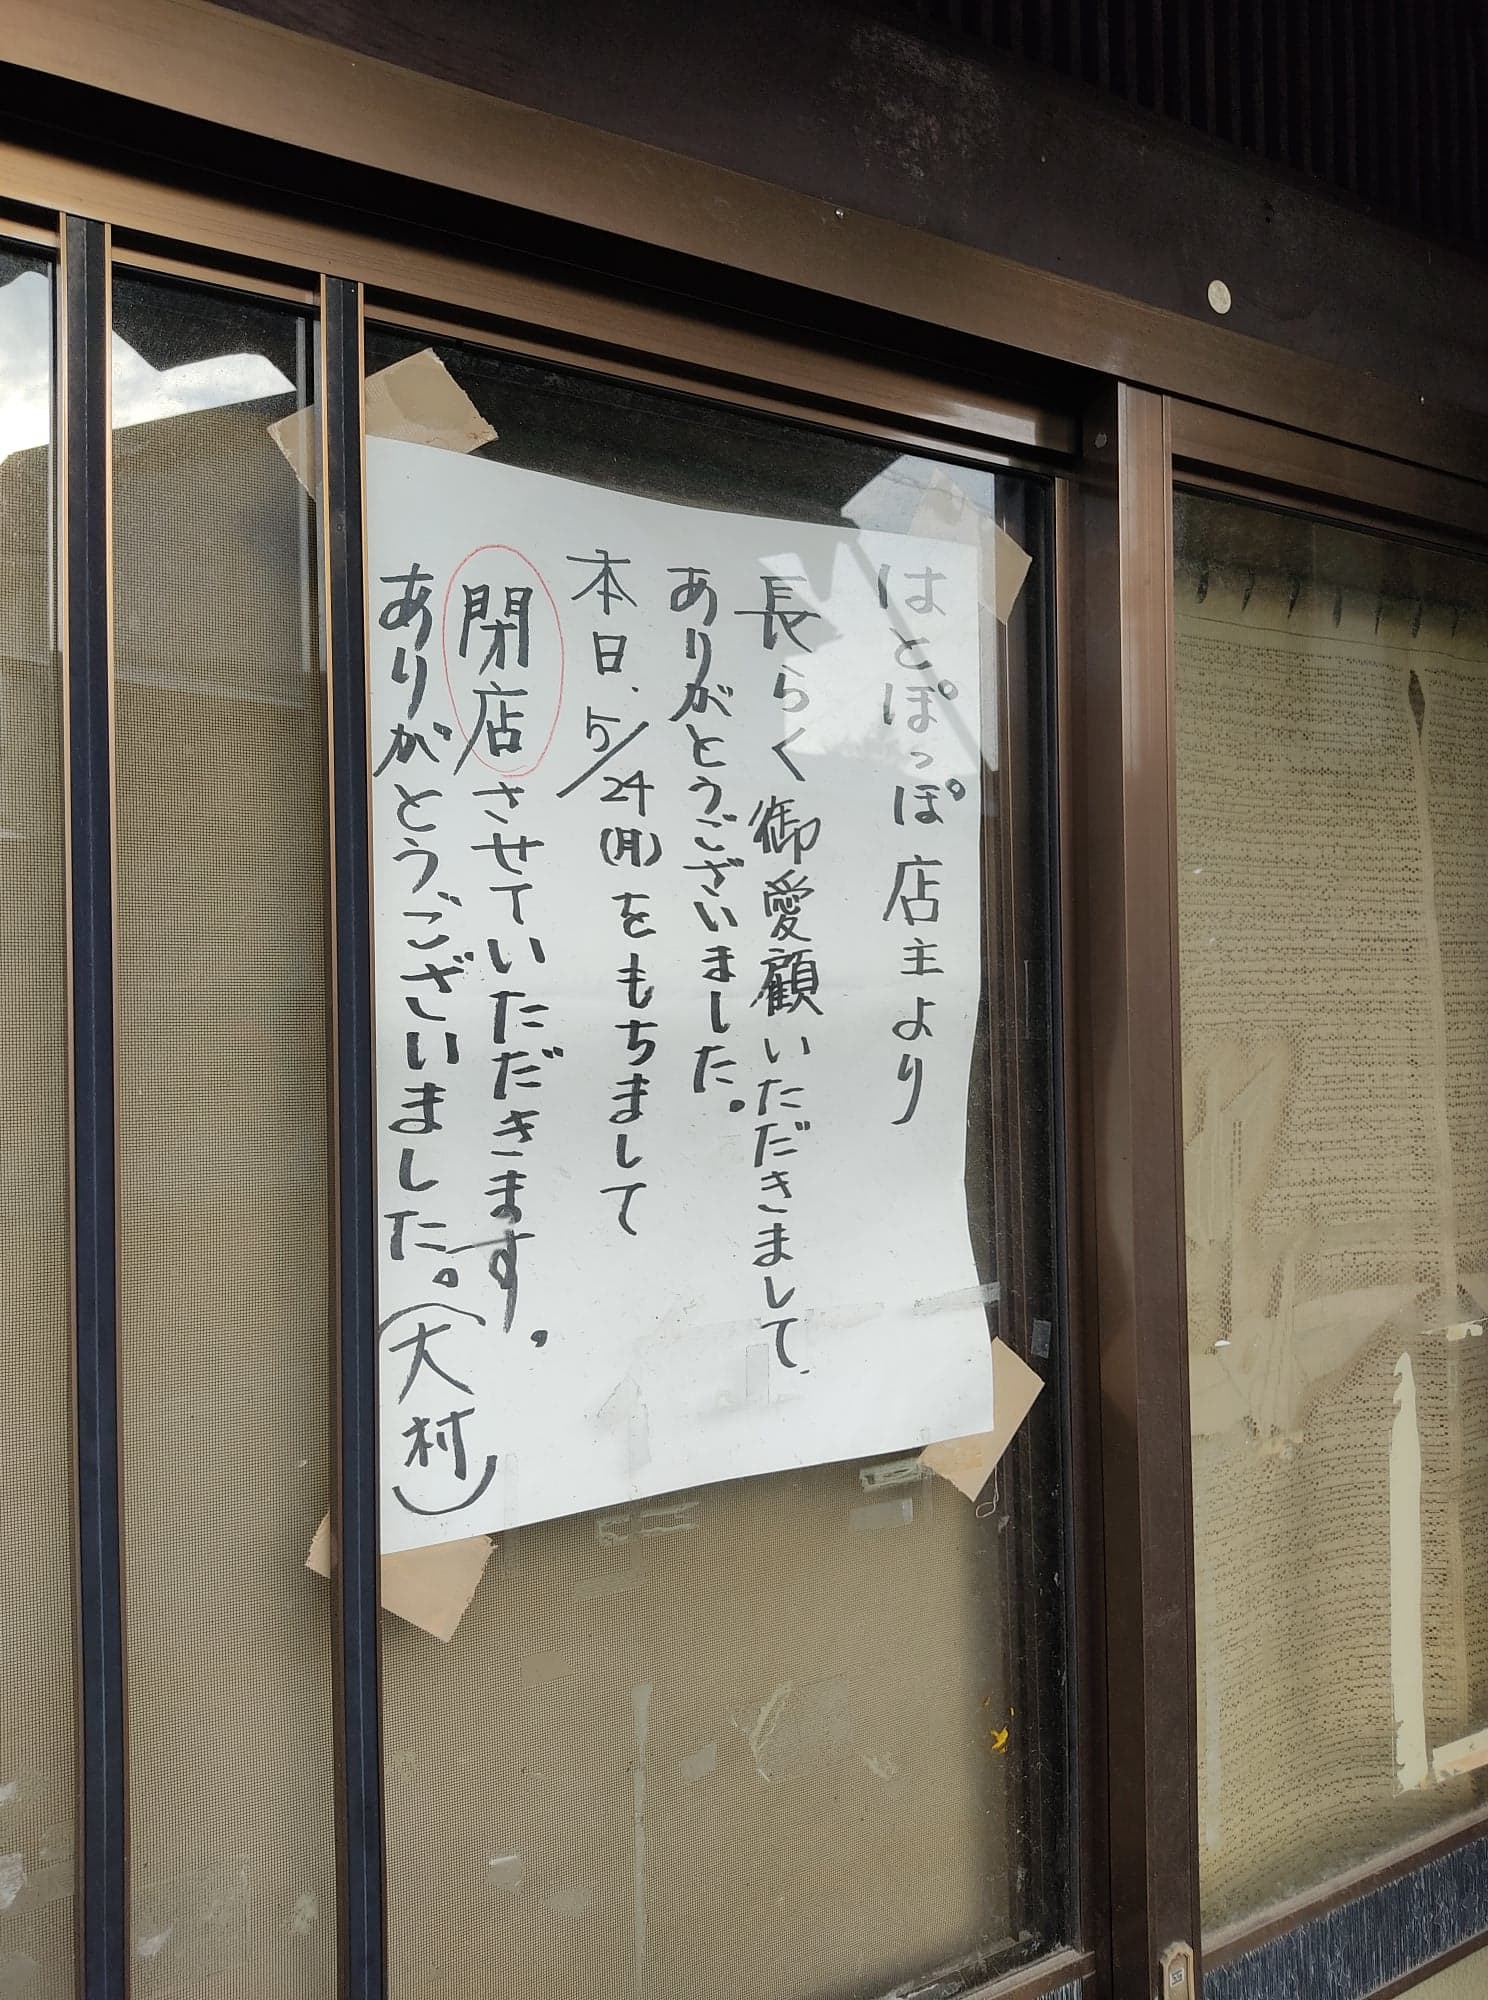 はとぽっぽ店主より
長らく御愛顧いただきまして
ありがとうございました。
本日、5/24(月)をもちまして
閉店させていただきます。
ありがとうございました。(大村)